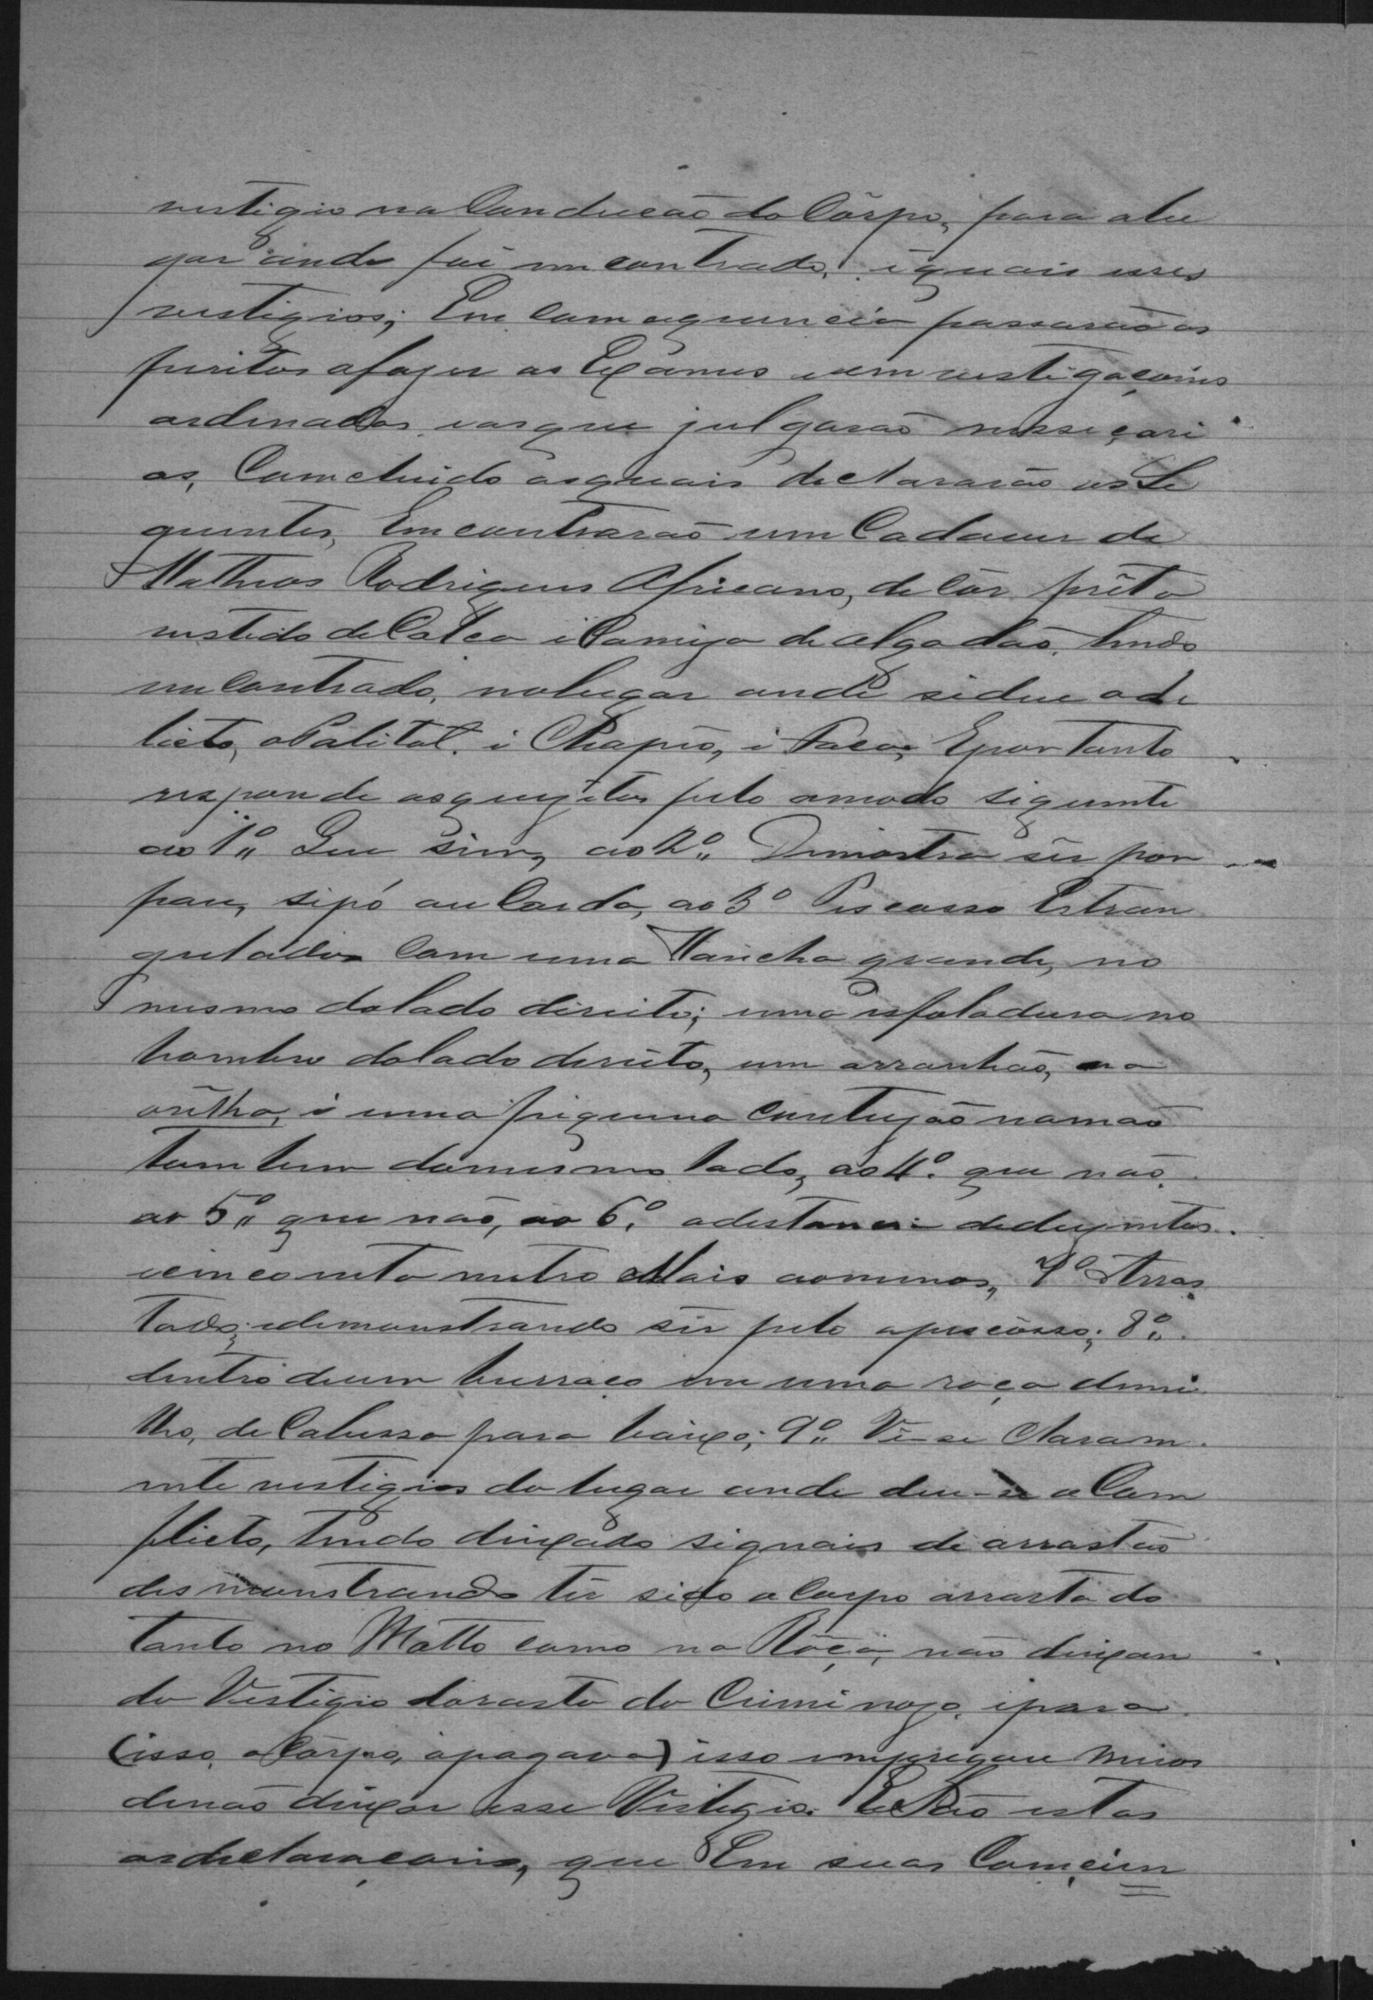 vestigio na Conducão do Côrpo, para o lu
gar aonde foi em contrado, e quais esses
vestigios; Em Comsequencia passarão os
piritos a fazer os Exâmes e em vestigaçoins
ordinadas e as que julgarão nesseçari
as, Comcluido as quais declararão os Se
guintes, Em contrarão um Cadaver de
Matheos Rodrigues Africano, de Côr prêta
vestido de Calca i Camiza de algodão, tendo
em Contrado, no lugar onde sideu o de
licto, o Palitot. i Chapeo, i Faca; E por tanto
responde os quezitos pelo o modo siguinte
ao 1º Que sim, ao 2º Dimostra sêr por
pau, sipó ou Corda, ao 3º Piscosso Estran
gulado Com uma Mancha grande, no
mesmo do lado direito; uma isfoladura no
hombro do lado direito, um arranhão, na
orêlha, i uma piquena Contuzão na mão
tambem do mesmo lado, ao 4º que não,
ao 5º que não, ao 6º a distancia de duzentos
e cincoenta metro Mais ao menos, 7º Arras
tado; e demonstrando sêr pelo o piscôsso; 8º
dentro de um burraco em uma roça de mi
lho, de Cabessa para baixo; 9º Vê-se Claram
ente vestigios do lugar onde deu-se o Com
flicto, tendo deixado signais de arrastão
desmonstrando têr sido o Corpo arrasta do
tanto no Matto como na Rôça, não deixan
do Vestigio do rasto do Criminozo, i para
(isso, o Côrpo, apagava) isso empregou meios
de não deixar esse Vistigio. E São estas
as declaracoins, que Em suas Comcien